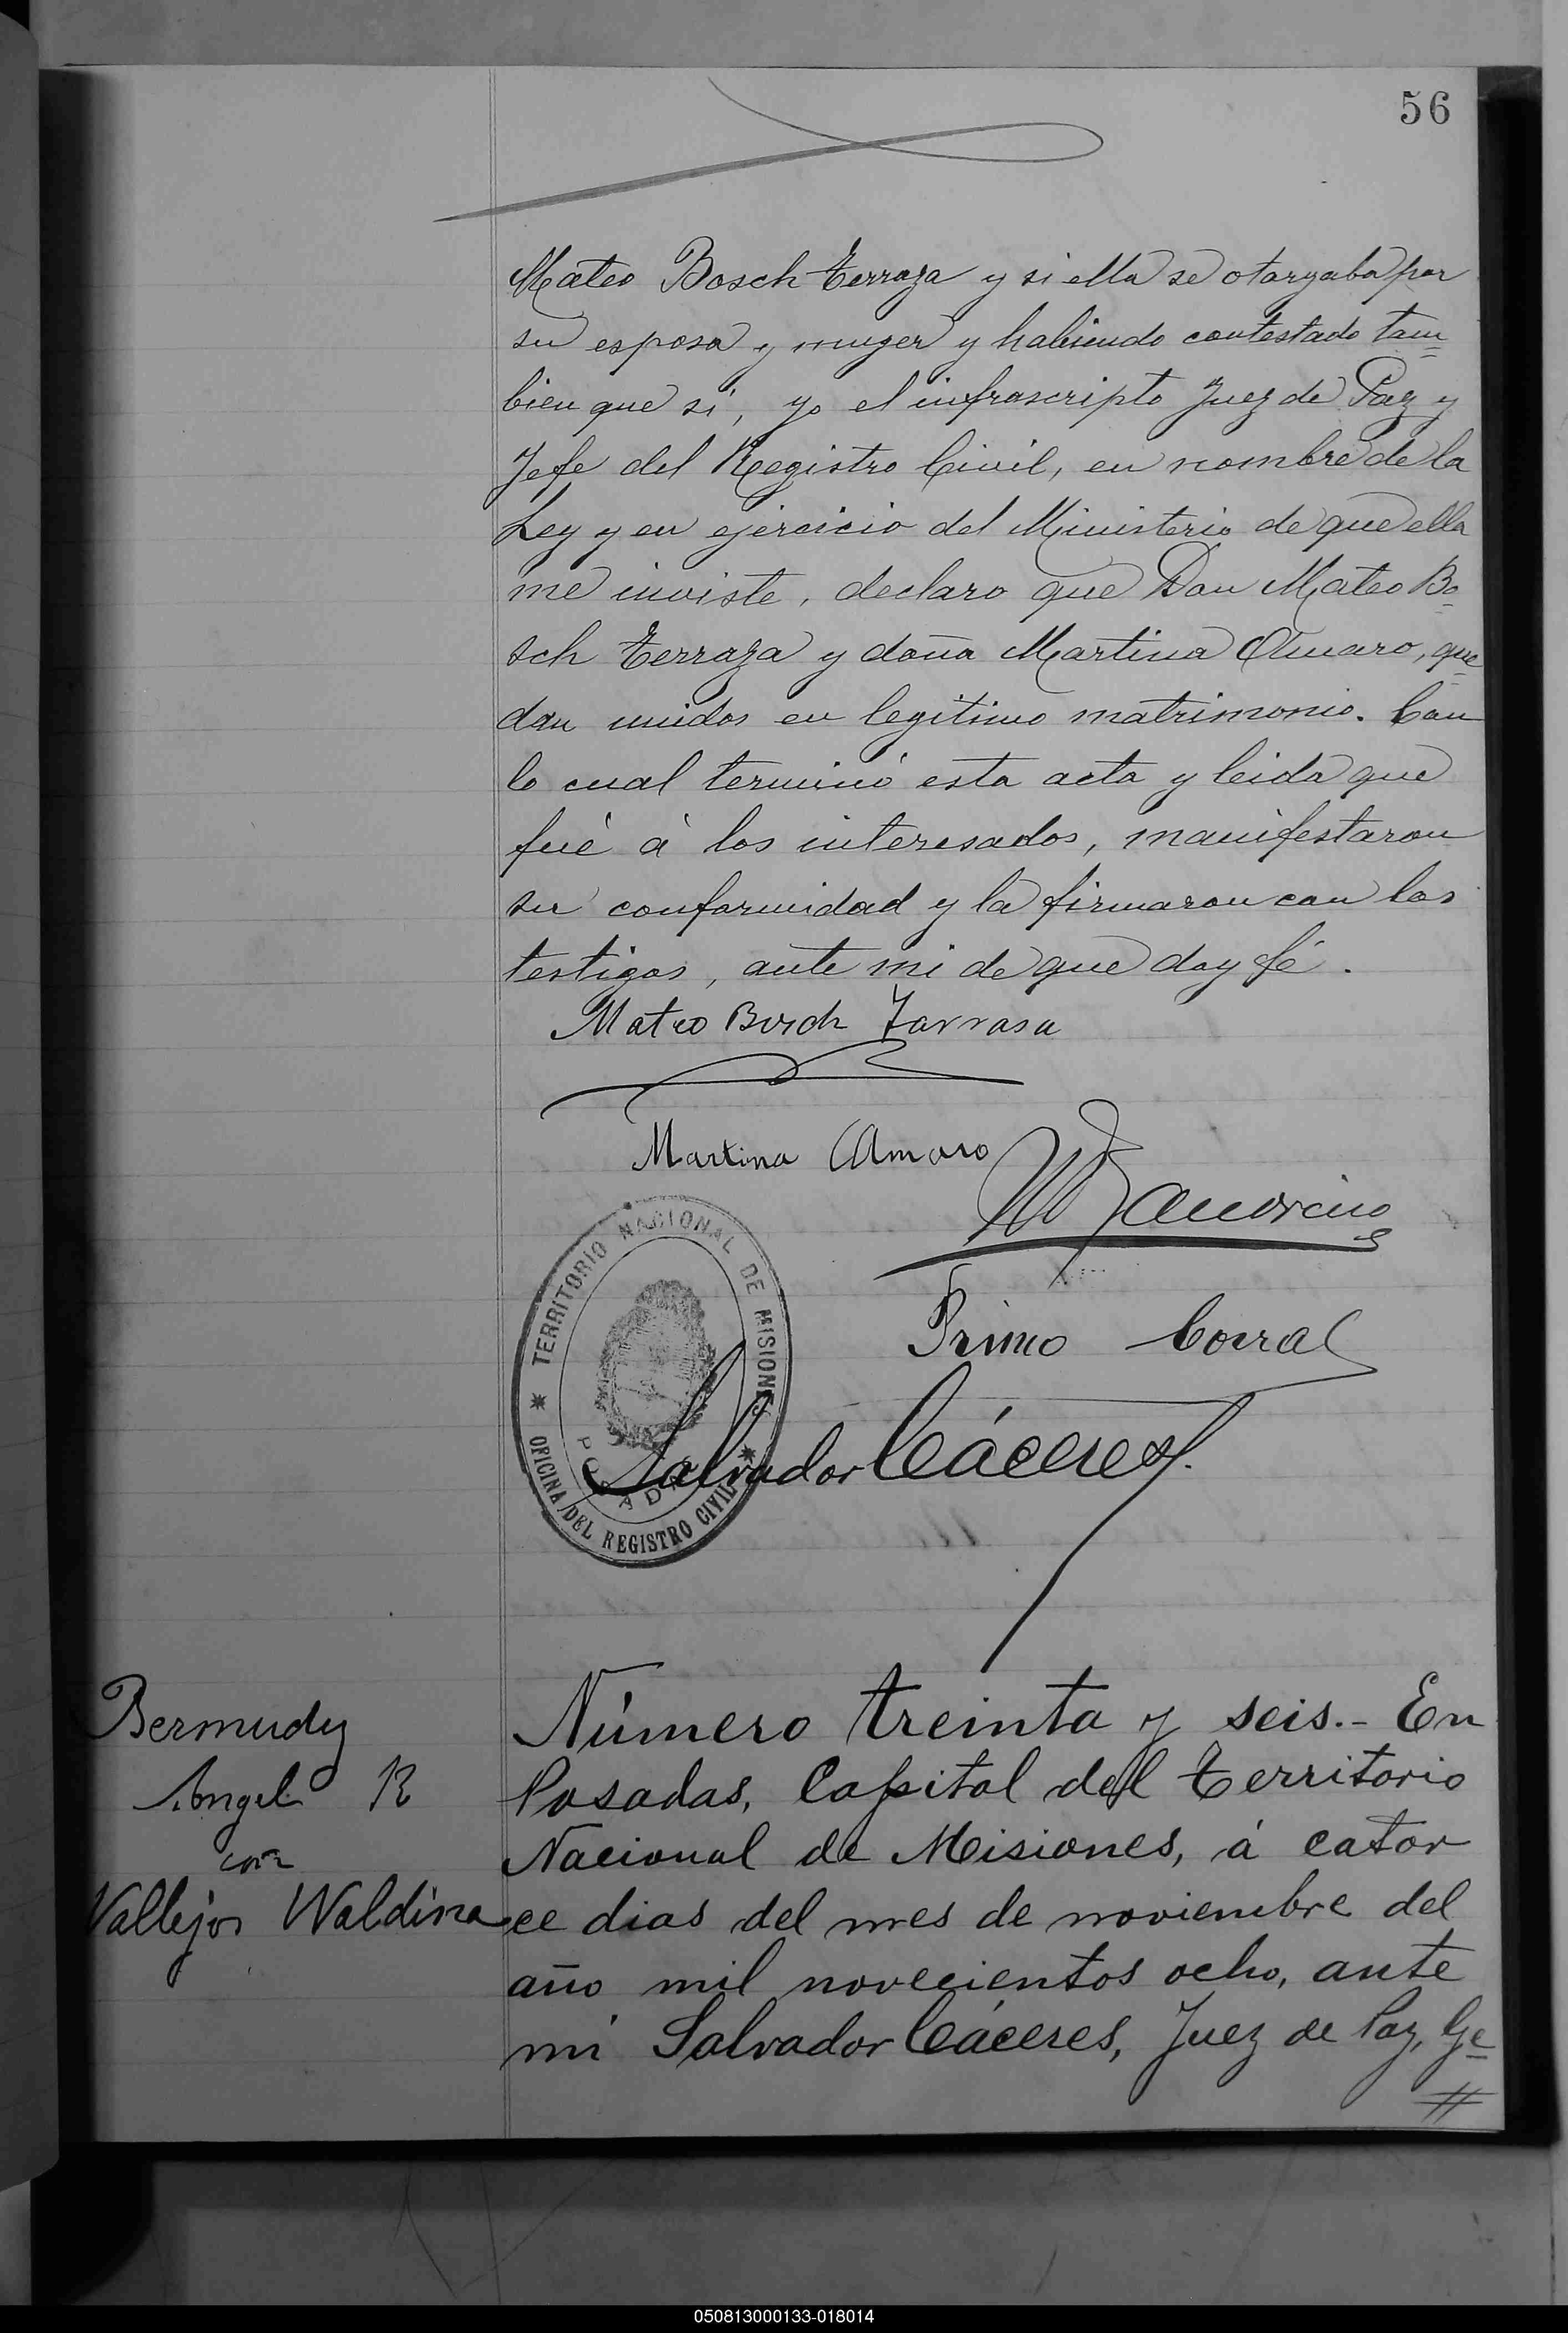 56
Mateo Bosch Terraza y si ella se otorgaba por
su esposa y muger y habiendo contestado tam=
bien que si, yo el infrascripto Juez de Paz y
Jefe del Registro Civil, en nombre de la
Ley y en ejercicio del Ministerio de que ella
me inviste, declaro que Don Mateo Bo=
sch Terraza y doña Martina Amaro, que=
dan unidos en legítimo matrimonio. Con
lo cual terminó esta acta y leida que
fué á los interesados, manifestaron
su conformidad y la firmaron con los
testigos, ante mi de que doy fé.
Mateo Bosch Tarrasa
Martina Amaro
Primo Corral
TERRITORIO NACIONAL DE MISIONES
POSADAS
OFICINA DEL REGISTRO CIVIL
Salvador Cáceres
Bermudez
Angel R
con
Vallejos Waldina
Número treinta y seis.- En
Posadas, Capital del Territorio
Nacional de Misiones, á cator
ce dias del mes de noviembre del
año mil novecientos ocho, ante
mi Salvador Cáceres, Juez de Paz, Ge=
//
050813000133-018014